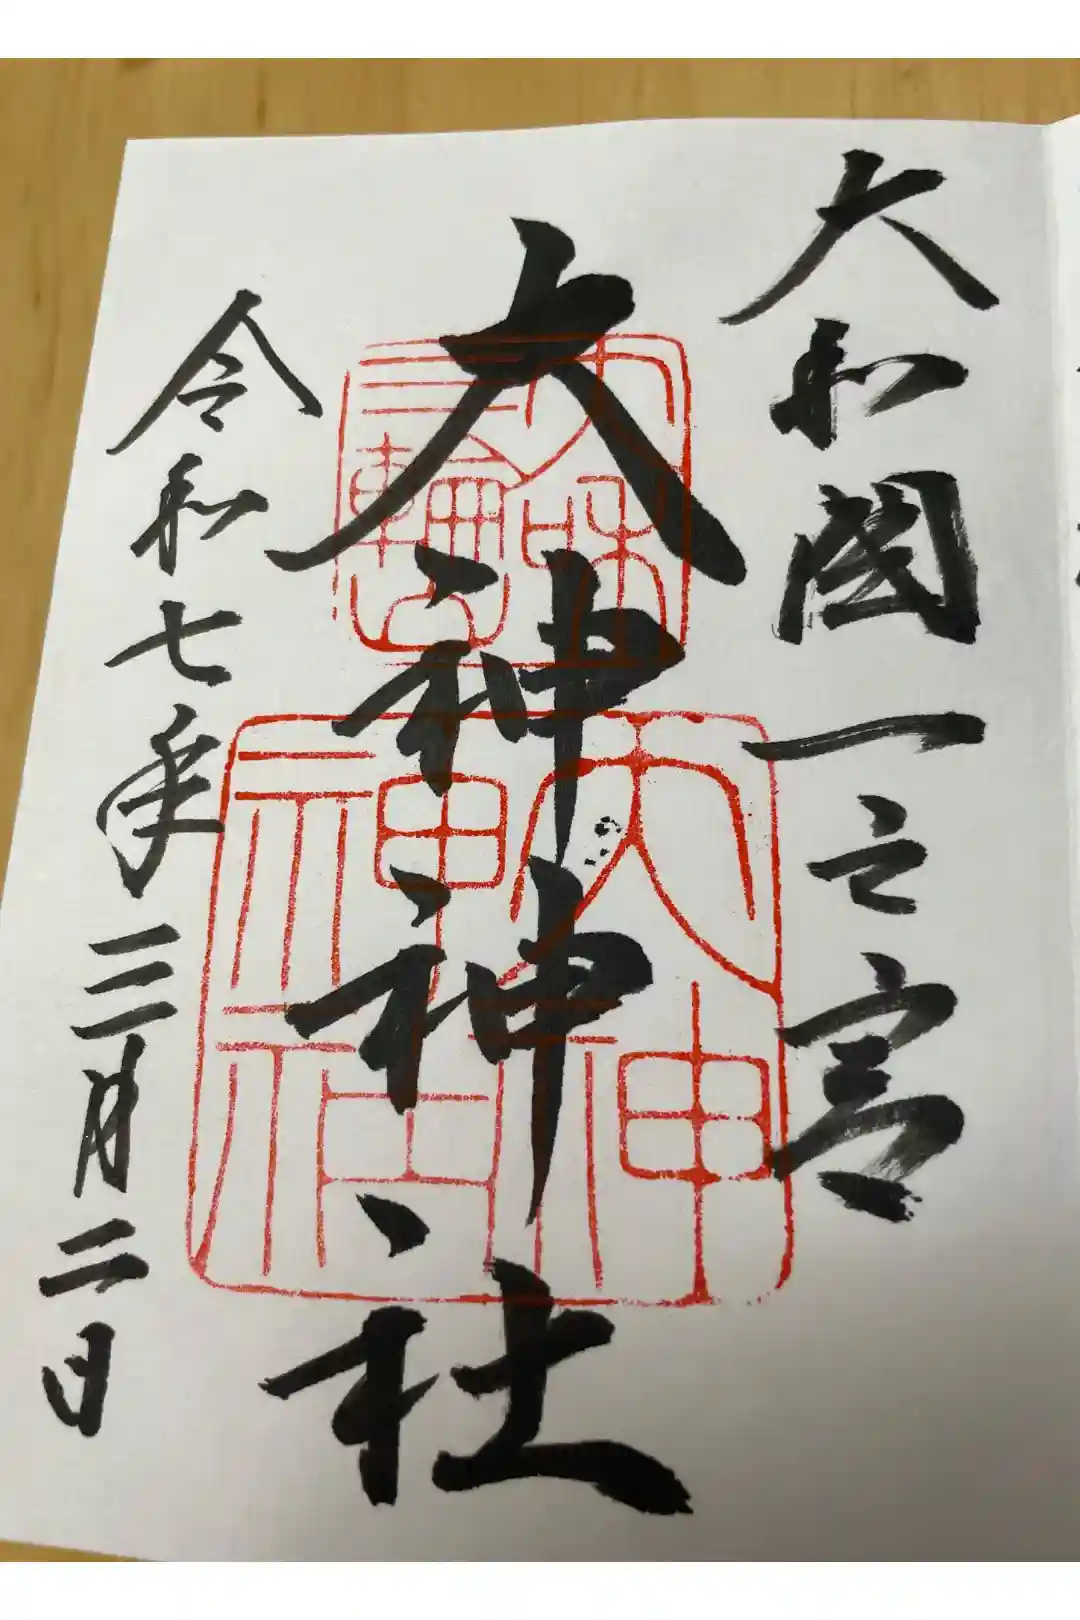 大和國一之宮
大神神社
令和七年三月二日
大神神社